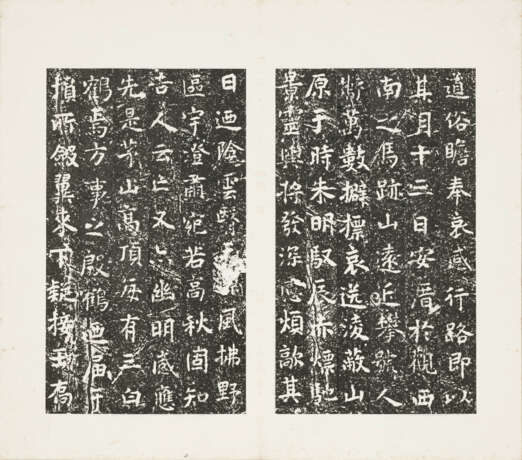 道俗瞻奉哀感行路即以
其月十三日安厝於觀西
南之馬跡山遠近攀號人
萬數擗摽哀送淩蔽山
原于時朱明馭辰赤熛馳
景靈輿將發深慮煩歊其
日迺陰雲翳風拂野
區宇澄肅宛若高秋固知
吉人云亡幽明感應
先是茅山高頂每有三白
鶴焉方事之殷鶴迺
所斂翼來下疑接高